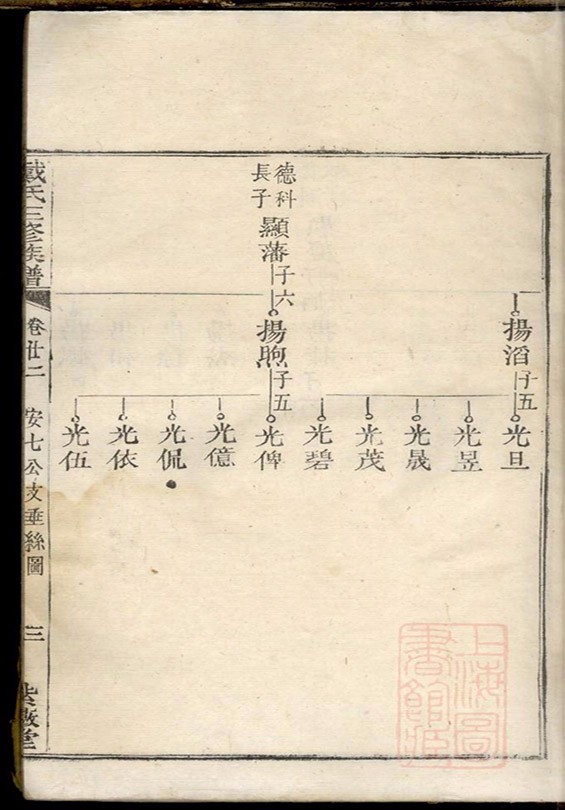 揚滔子五
光旦
光昱
光晟
光茂
光碧
德科
長子
顯藩子六
揚煦子五
光俾
光億
光侃
光依
光伍
戴氏三修族譜
卷廿二
安七公支垂絲圖
三
上海圖
書館藏